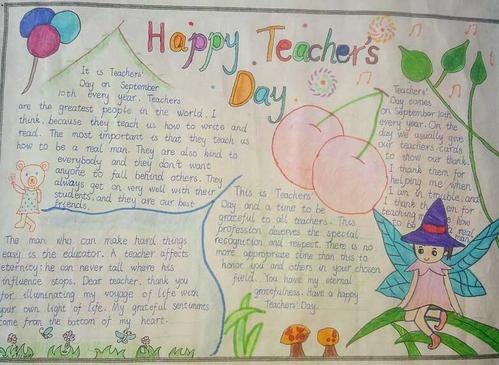 Happy Teacher's
Day
It is Teachers'
Day on September
10th every year. Teachers
are the greatest people in the world, I
think, because they teach us how to write and
read. The most important is that they teach us
how to be a real man. They are also kind to
everybody and they don't want
anyone to fall behind others. They
always get on very well with their
students, and they are our best
friends.
The man who can make hard things
easy is the educator. A teacher affects
eternity: he can never tell where his
influence stops. Dear teacher, thank you
for illuminating my voyage of life with
your own light of life. My grateful sentiments
come from the bottom of my heart.
This is Teachers'
Day and a time to be
grateful to all teachers. This
profession deserves the special
recognition and respect. There is no
more appropriate time than this to
honor you and others in your chosen
field. You have my eternal
gratefulness. Have a happy
Teachers' Day.
Teachers'
Day comes
on September 10th
every year. On the
day we usually give
our teachers cards
to show our thank.
I thank them for
helping me when
I am in trouble, and
I thank them for
teaching me how
to be a real
man